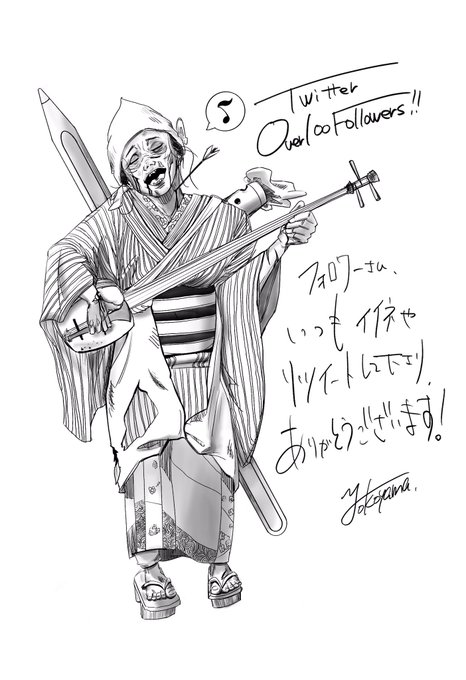 Twitter
Over 100 Followers!!
フォロワーさん、
いつもイイネや
リツイートして下さり、
ありがとうございます!
Yokoyama.